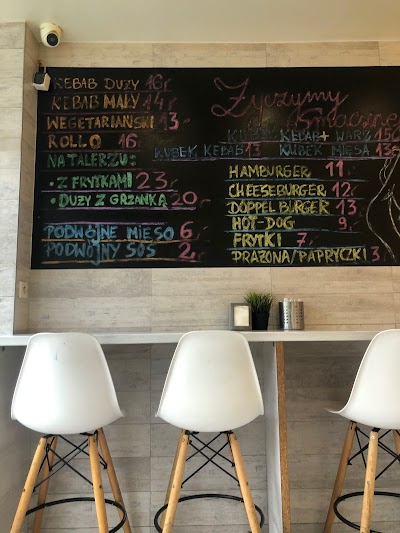 KEBAB DUŻY 16,-
KEBAB MAŁY 14,-
WEGETARIAŃSKI 13,-
ROLLO 16
NA TALERZU:
• Z FRYTKAMI 23,-
• DUŻY Z GRZANKĄ 20,-
PODWÓJNE MIĘSO 6,-
PODWÓJNY SOS 2,-
Życzymy
Smacznego
KUBEK KEBAB+WARZ 15
KUBEK KEBAB 13 KUBEK MIĘSA 13,-
HAMBURGER 11,-
CHEESEBURGER 12,-
DOPPELBURGER 13,-
HOT-DOG 9,-
FRYTKI 7,-
PRAŻONA/PAPRYCZKI 3,-